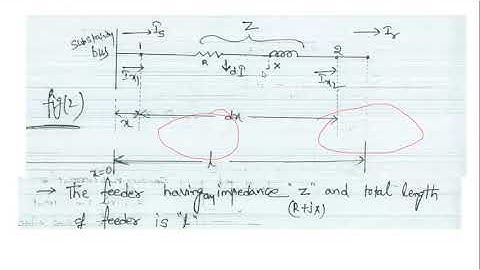 Z
substation
bus
Is
Ir
1
2
R
jX
dI
Ix1
Ix2
fig(2)
x
dx
x=0
l
→ The feeder having an impedance "Z" and total length
(R+jX)
of feeder is "l"